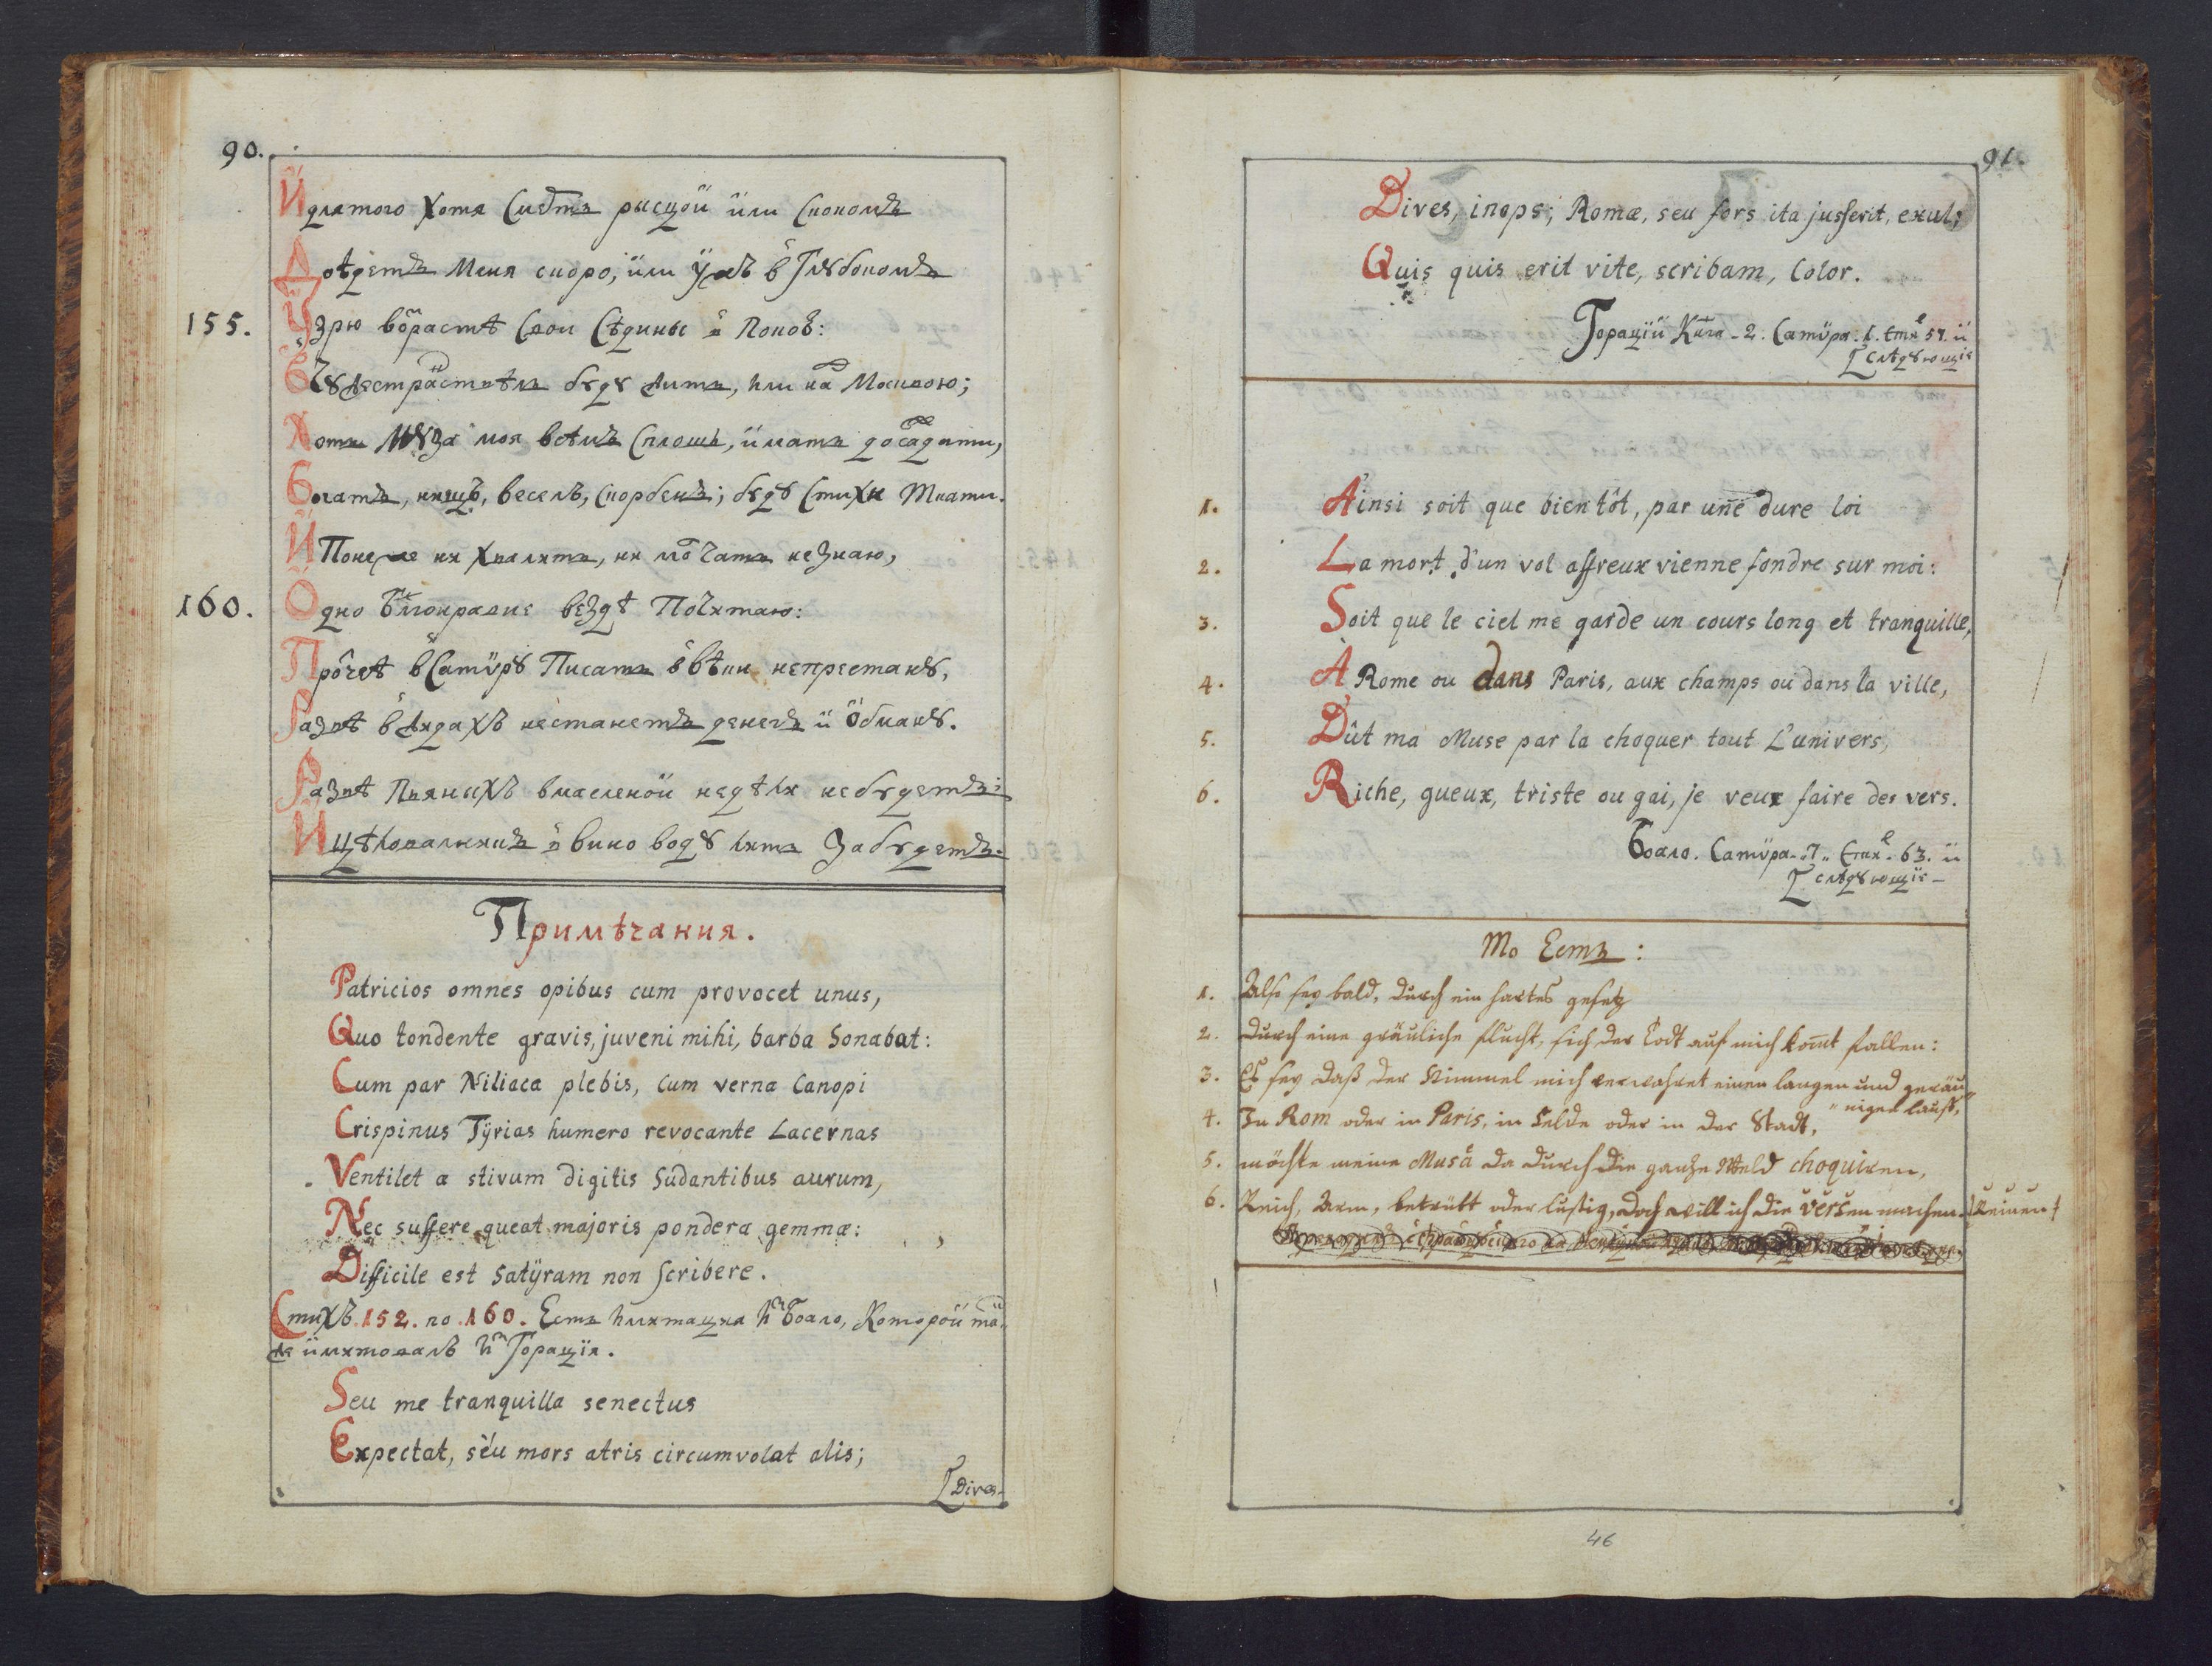 90.
И для того хотя Смѣрть рысцой или скокомъ
Доѣдетъ меня скоро, или ужъ в глꙋбокомъ
155. Узрю возрастѣ свои сѣдины и покоѣ:
В чꙋжестранствѣ ли бꙋдꙋ жить, или над Москвою;
Хоть Мꙋза моя всѣмъ сплошь, имать досаждати,
Богатъ, нищъ, веселъ, скорбенъ; бꙋдꙋ стихи ткати.
И понеже ни хвалить, ни молчать не знаю,
160. Одно благонравие вездѣ почитаю:
Прочее в Сатѵрꙋ писать в вѣки непрестанꙋ,
Развѣ в Жидахъ нестанетъ денегъ и обманꙋ.
Развѣ пьяныхъ в масленой недѣли не бꙋдетъ:
И цѣловальникъ в вино водꙋ лить забꙋдетъ.
Примѣчания.
Patricios omnes opibus cum provocet unus,
Quo tondente gravis, juveni mihi, barba Sonabat:
Cum par Niliaca plebis, Cum verna Canopi
Crispinus Tÿrias humero revocante Lacernas
Ventilet a stivum digitis Sudantibus aurum,
Nec suffere queat majoris pondera gemmæ:
Difficile est Satÿram non Scribere.
Стихъ. 152. по 160. Есть имитация из Боало, которой та„
же имитовалъ из Горация.
Seu me tranquilla senectus
Expectat, séu mors atris circumvolat alis;
[Dives-
91.
Dives, inops; Romæ, seu fors ita jusserit, exul;
Quis quis erit vite, scribam, Color.
Горацiй Книга-2. Сатѵра. 1. стих 57. и
[слѣдꙋющiе
1. Ainsi soit que bientôt, par une dure loi
2. La mort d'un vol affreux vienne fondre sur moi:
3. Soit que le ciel me garde un cours long et tranquille,
4. À Rome ou dans Paris, aux champs ou dans la ville,
5. Dût ma Muse par la choquer tout L'univers,
6. Riche, gueux, triste ou gai, je veux faire des vers.
Боало. Сатѵра. 7. стих. 63. и
[слѣдꙋющiе-
То Есть:
1. Also sey bald, durch ein hartes gesetz
2. Durch eine gräuliche flucht, sich der Todt auf mich kom̄t fallen:
3. Es sey daß der Himmel mich verwahret einen langen und geräu„
„nigen lauff,
4. Zu Rom oder in Paris, in Felde oder in der Stadt,
5. möchte meine Musa da durch die gantze Weld choquiren,
6. Reich, Arm, betrübt oder lustig, doch will ich die versen machen. Reimen
46